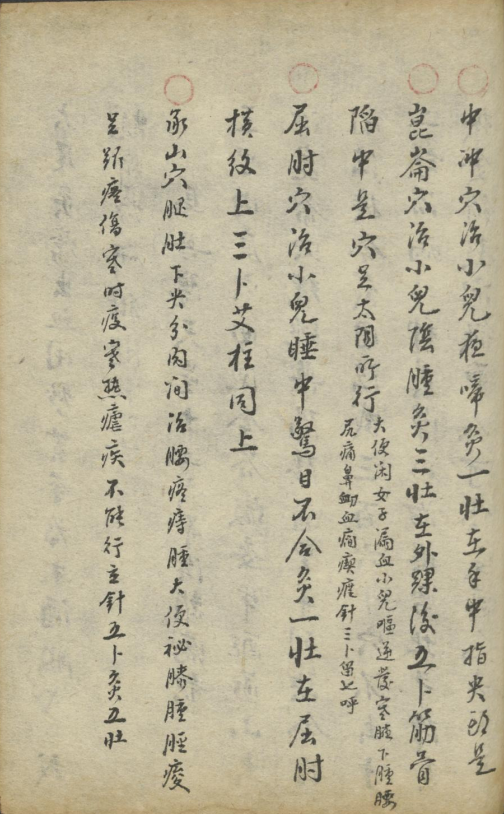 中冲穴治小兒夜啼灸一壯在手中指尖頭是
崑崙穴治小兒陰腫灸三壯在外踝後五卜筋骨
陷中是穴足太阳所行
大便闭女子漏血小兒嘔逆發寒腋下腫腰
尻痛鼻衄血癇瘈瘧針三卜留七呼
屈肘穴治小兒睡中驚目不合灸一壯在屈肘
橫紋上三卜艾柱同上
承山穴腿肚下尖分肉间治腰疼痔腫大便祕膝腫脛痠
足跟疼傷寒时疫寒熱瘧疾不能行立針五卜灸五壯